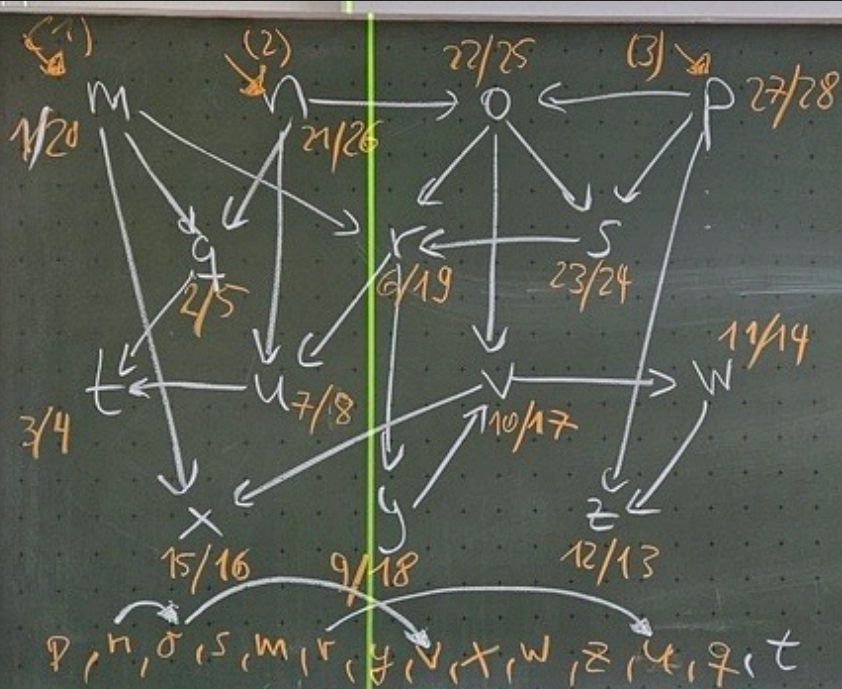 (1) (2) 22/25 (3)
m n o p 27/28
1/20 21/26
q r s
2/5 6/19 23/24
11/14
t u v w
3/4 7/8 10/17
x y z
15/16 9/18 12/13
p, n, o, s, m, r, y, v, x, w, z, u, q, t